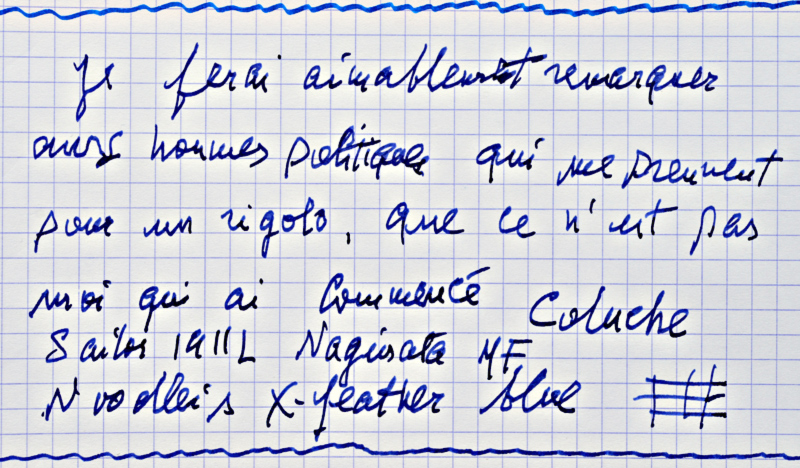 Je ferai aimablement remarquer
aux hommes politiques qui me prennent
pour un rigolo, que ce n'est pas
moi qui ai commencé Coluche
Sailor 1911L Naginata MF
Noodler's X-feather blue